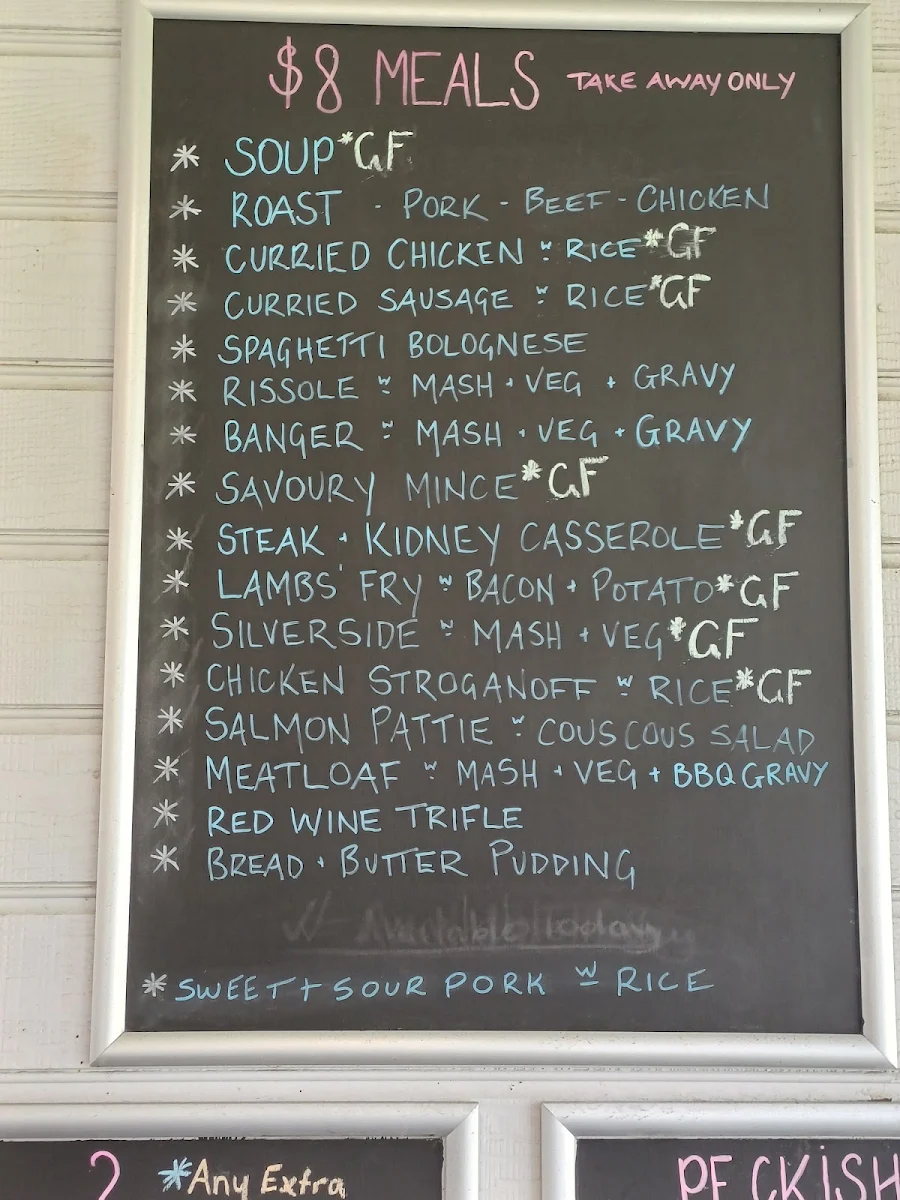 $8 MEALS TAKE AWAY ONLY
* SOUP *GF
* ROAST - PORK - BEEF - CHICKEN
* CURRIED CHICKEN w RICE *GF
* CURRIED SAUSAGE w RICE *GF
* SPAGHETTI BOLOGNESE
* RISSOLE w MASH + VEG + GRAVY
* BANGER w MASH + VEG + GRAVY
* SAVOURY MINCE *GF
* STEAK + KIDNEY CASSEROLE *GF
* LAMBS' FRY w BACON + POTATO *GF
* SILVERSIDE w MASH + VEG *GF
* CHICKEN STROGANOFF w RICE *GF
* SALMON PATTIE w COUSCOUS SALAD
* MEATLOAF w MASH + VEG + BBQ GRAVY
* RED WINE TRIFLE
* BREAD + BUTTER PUDDING
Available Today
* SWEET + SOUR PORK w RICE
*Any Extra
PECKiSH